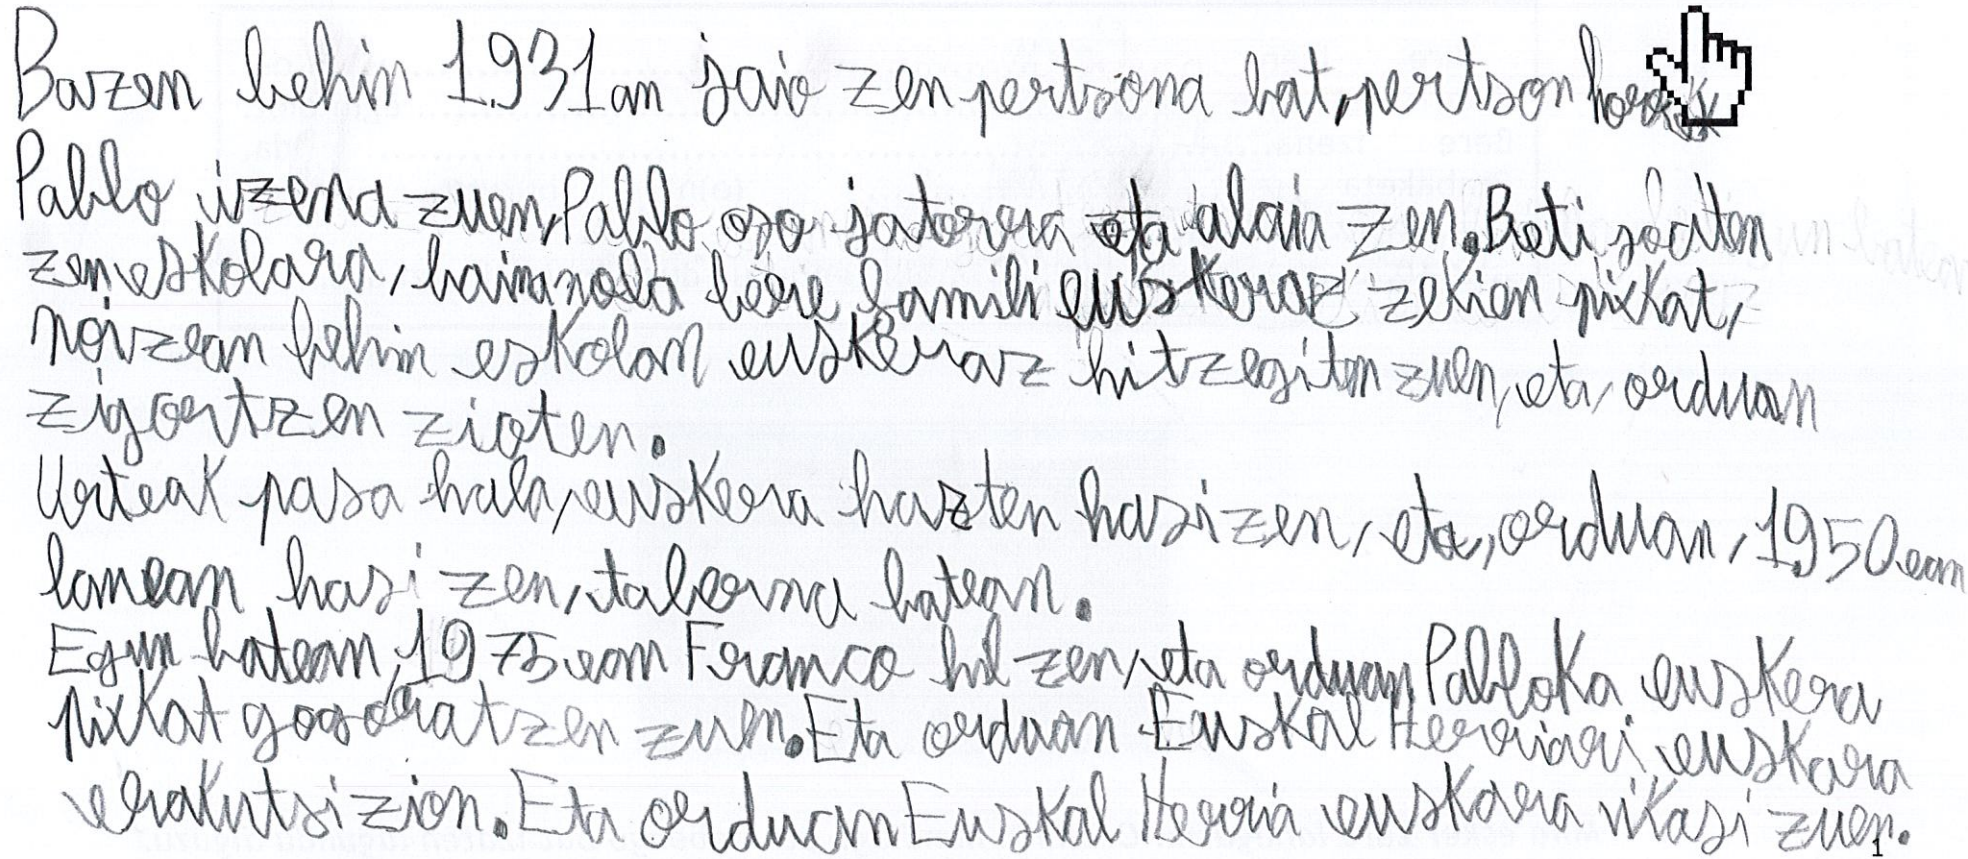 Bazen behin 1931an jaio zen pertsona bat, pertson horek
Pablo izena zuen, Pablo oso jatorra eta alaia zen. Beti joaiten
zen eskolara, baina nola bere famili euskeraz zekien pixkat,
noizean behin eskolan euskeraz hitzegiten zuen, eta, orduan
zigortzen zioten.
Urteak pasa hala, euskera hazten hasi zen, eta, orduan, 1950ean
lanean hasi zen, taberna batean.
Egun batean, 1975ean Franco hil zen, eta orduan Pabloka euskera
pixkat gogoratzen zuen. Eta orduan Euskal Herriari euskara
erakutsi zion. Eta orduan Euskal Herria euskara ikasi zuen.
1